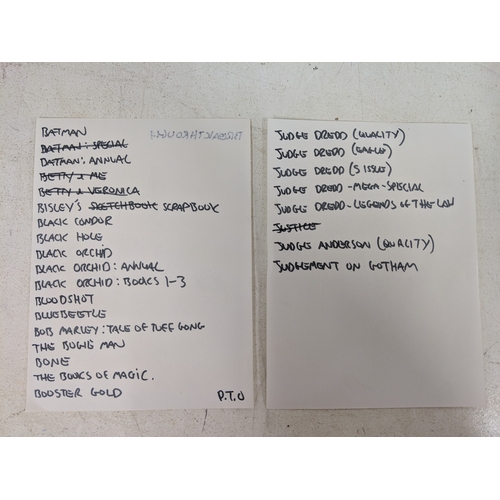 BATMAN
BATMAN: SPECIAL
BATMAN: ANNUAL
BETTY & ME
BETTY & VERONICA
BISLEY'S SKETCHBOOK SCRAPBOOK
BLACK CONDOR
BLACK HOLE
BLACK ORCHID
BLACK ORCHID: ANNUAL
BLACK ORCHID: BOOKS 1-3
BLOODSHOT
BLUEBEETLE
BOB MARLEY: TALE OF TUFF GONG
THE BOGIE MAN
BONE
THE BOOKS OF MAGIC.
BOOSTER GOLD
P.T.O
JUDGE DREDD (QUALITY)
JUDGE DREDD (EAGLE)
JUDGE DREDD (5 ISSUE)
JUDGE DREDD - MEGA-SPECIAL
JUDGE DREDD - LEGENDS OF THE LAW
JUSTICE
JUDGE ANDERSON (QUALITY)
JUDGEMENT ON GOTHAM